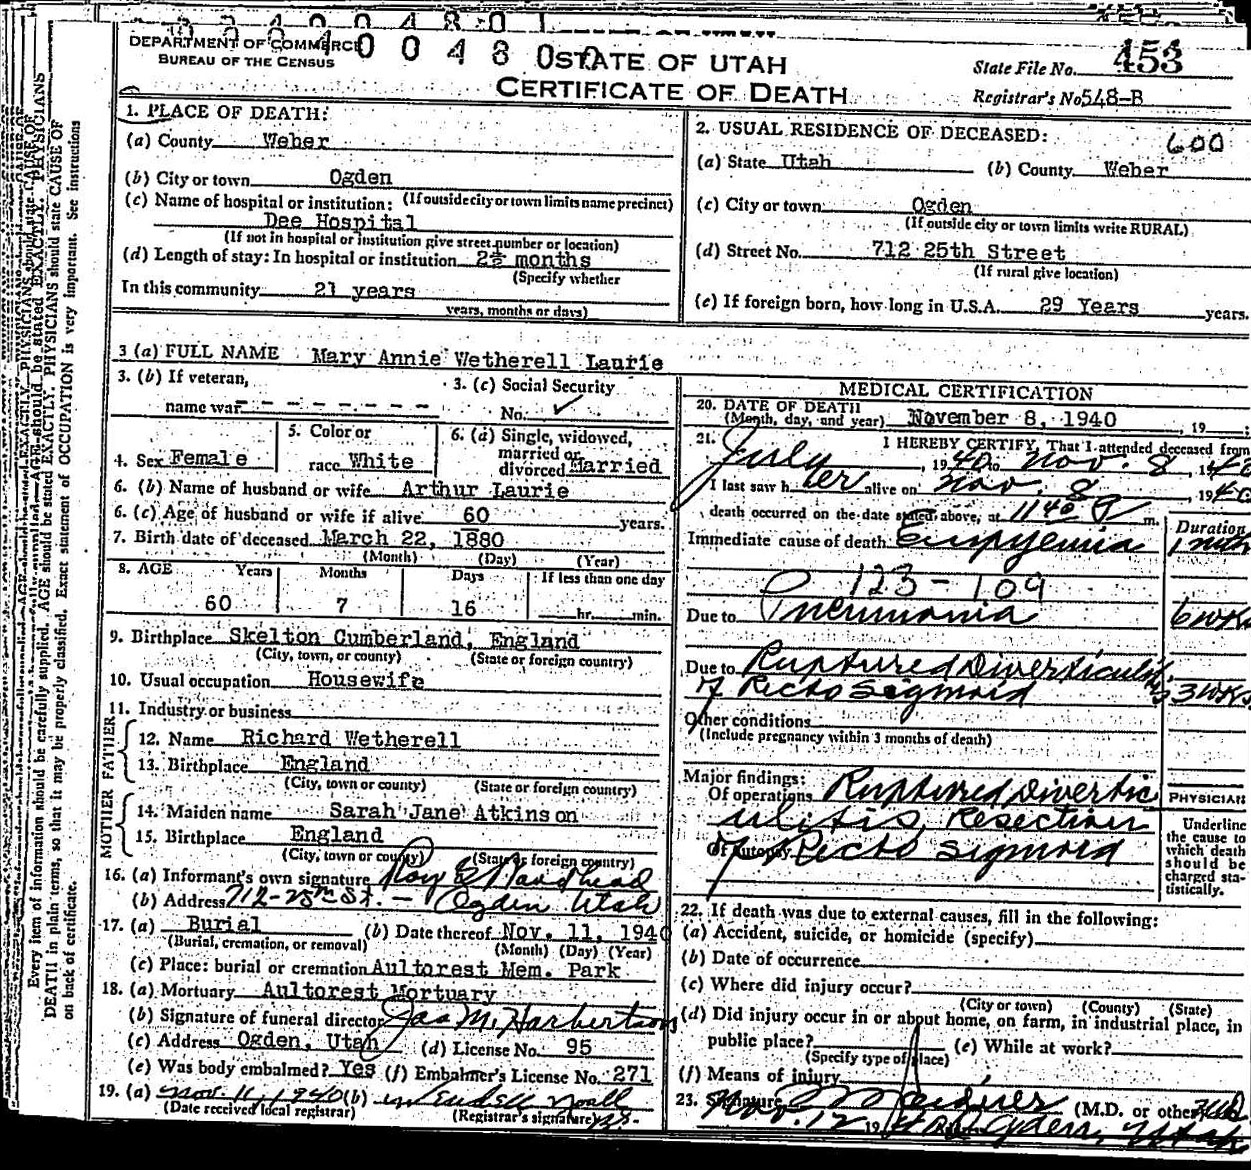 DEPARTMENT OF COMMERCE
BUREAU OF THE CENSUS
0 0 4 8 0
STATE OF UTAH
CERTIFICATE OF DEATH
State File No. 453
Registrar's No 548-B
1. PLACE OF DEATH:
(a) County Weber
(b) City or town Ogden
(If outside city or town limits name precinct)
(c) Name of hospital or institution:
Dee Hospital
(If not in hospital or institution give street number or location)
(d) Length of stay: In hospital or institution 2½ months
(Specify whether
In this community 21 years
years, months or days)
2. USUAL RESIDENCE OF DECEASED:
600
(a) State Utah (b) County Weber
(c) City or town Ogden
(If outside city or town limits write RURAL)
(d) Street No. 712 25th Street
(If rural give location)
(e) If foreign born, how long in U.S.A. 29 Years years.
3 (a) FULL NAME Mary Annie Wetherell Laurie
3. (b) If veteran,
name war
3. (c) Social Security
No. ✓
4. Sex Female
5. Color or
race White
6. (a) Single, widowed,
married or
divorced Married
6. (b) Name of husband or wife Arthur Laurie
6. (c) Age of husband or wife if alive 60 years.
7. Birth date of deceased March 22, 1880
(Month) (Day) (Year)
8. AGE Years Months Days If less than one day
60 7 16 hr. min.
9. Birthplace Skelton Cumberland, England
(City, town, or county) (State or foreign country)
10. Usual occupation Housewife
11. Industry or business
FATHER
12. Name Richard Wetherell
13. Birthplace England
(City, town or county) (State or foreign country)
MOTHER
14. Maiden name Sarah Jane Atkinson
15. Birthplace England
(City, town or county) (State or foreign country)
16. (a) Informant's own signature Roy
(b) Address 712-25th St. - Ogden Utah
17. (a) Burial (b) Date thereof Nov. 11, 1940
(Burial, cremation, or removal) (Month) (Day) (Year)
(c) Place: burial or cremation Aultorest Mem. Park
18. (a) Mortuary Aultorest Mortuary
(b) Signature of funeral director Jas M. Harbertson
(c) Address Ogden, Utah (d) License No. 95
(e) Was body embalmed? Yes (f) Embalmer's License No. 271
19. (a) Nov. 11, 1940 (b)
(Date received local registrar) (Registrar's signature)
MEDICAL CERTIFICATION
20. DATE OF DEATH
(Month, day, and year) November 8, 1940, 19
21. I HEREBY CERTIFY, That I attended deceased from
July, 1940 to Nov. 8, 1940
I last saw h er alive on Nov. 8, 1940
death occurred on the date stated above, at 11 40 P m.
Duration
Immediate cause of death Empyemia 1 mth
123 - 109
Due to Pneumonia 6 wks
Due to Ruptured Diverticulitis
of Recto Sigmoid 3 wks.
Other conditions
(Include pregnancy within 3 months of death)
Major findings:
Of operations Ruptured Divertic
ulitis, Resection
Of autopsy of Recto Sigmoid
PHYSICIAN
Underline
the cause to
which death
should be
charged sta-
tistically.
22. If death was due to external causes, fill in the following:
(a) Accident, suicide, or homicide (specify)
(b) Date of occurrence
(c) Where did injury occur?
(City or town) (County) (State)
(d) Did injury occur in or about home, on farm, in industrial place, in
public place? (e) While at work?
(Specify type of place)
(f) Means of injury
23. Signature (M.D. or other) MD
Nov. 12 19 Ogden, Utah
Every item of information should be carefully supplied. AGE should be stated EXACTLY. PHYSICIANS should state CAUSE OF
DEATH in plain terms, so that it may be properly classified. Exact statement of OCCUPATION is very important. See instructions
on back of certificate.